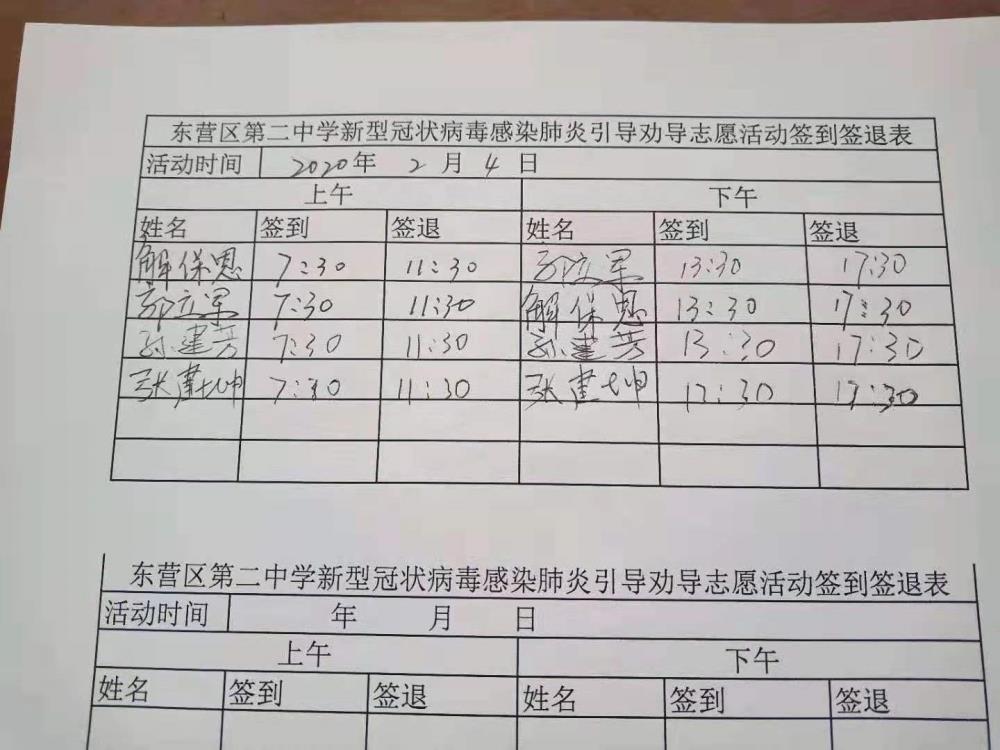 东营区第二中学新型冠状病毒感染肺炎引导劝导志愿活动签到签退表
活动时间 2020年 2 月 4 日
上午 下午
姓名 签到 签退 姓名 签到 签退
解保恩 7:30 11:30 郭立军 13:30 17:30
郭立军 7:30 11:30 解保恩 13:30 17:30
孙建芳 7:30 11:30 孙建芳 13:30 17:30
张建坤 7:30 11:30 张建坤 13:30 17:30
东营区第二中学新型冠状病毒感染肺炎引导劝导志愿活动签到签退表
活动时间 年 月 日
上午 下午
姓名 签到 签退 姓名 签到 签退